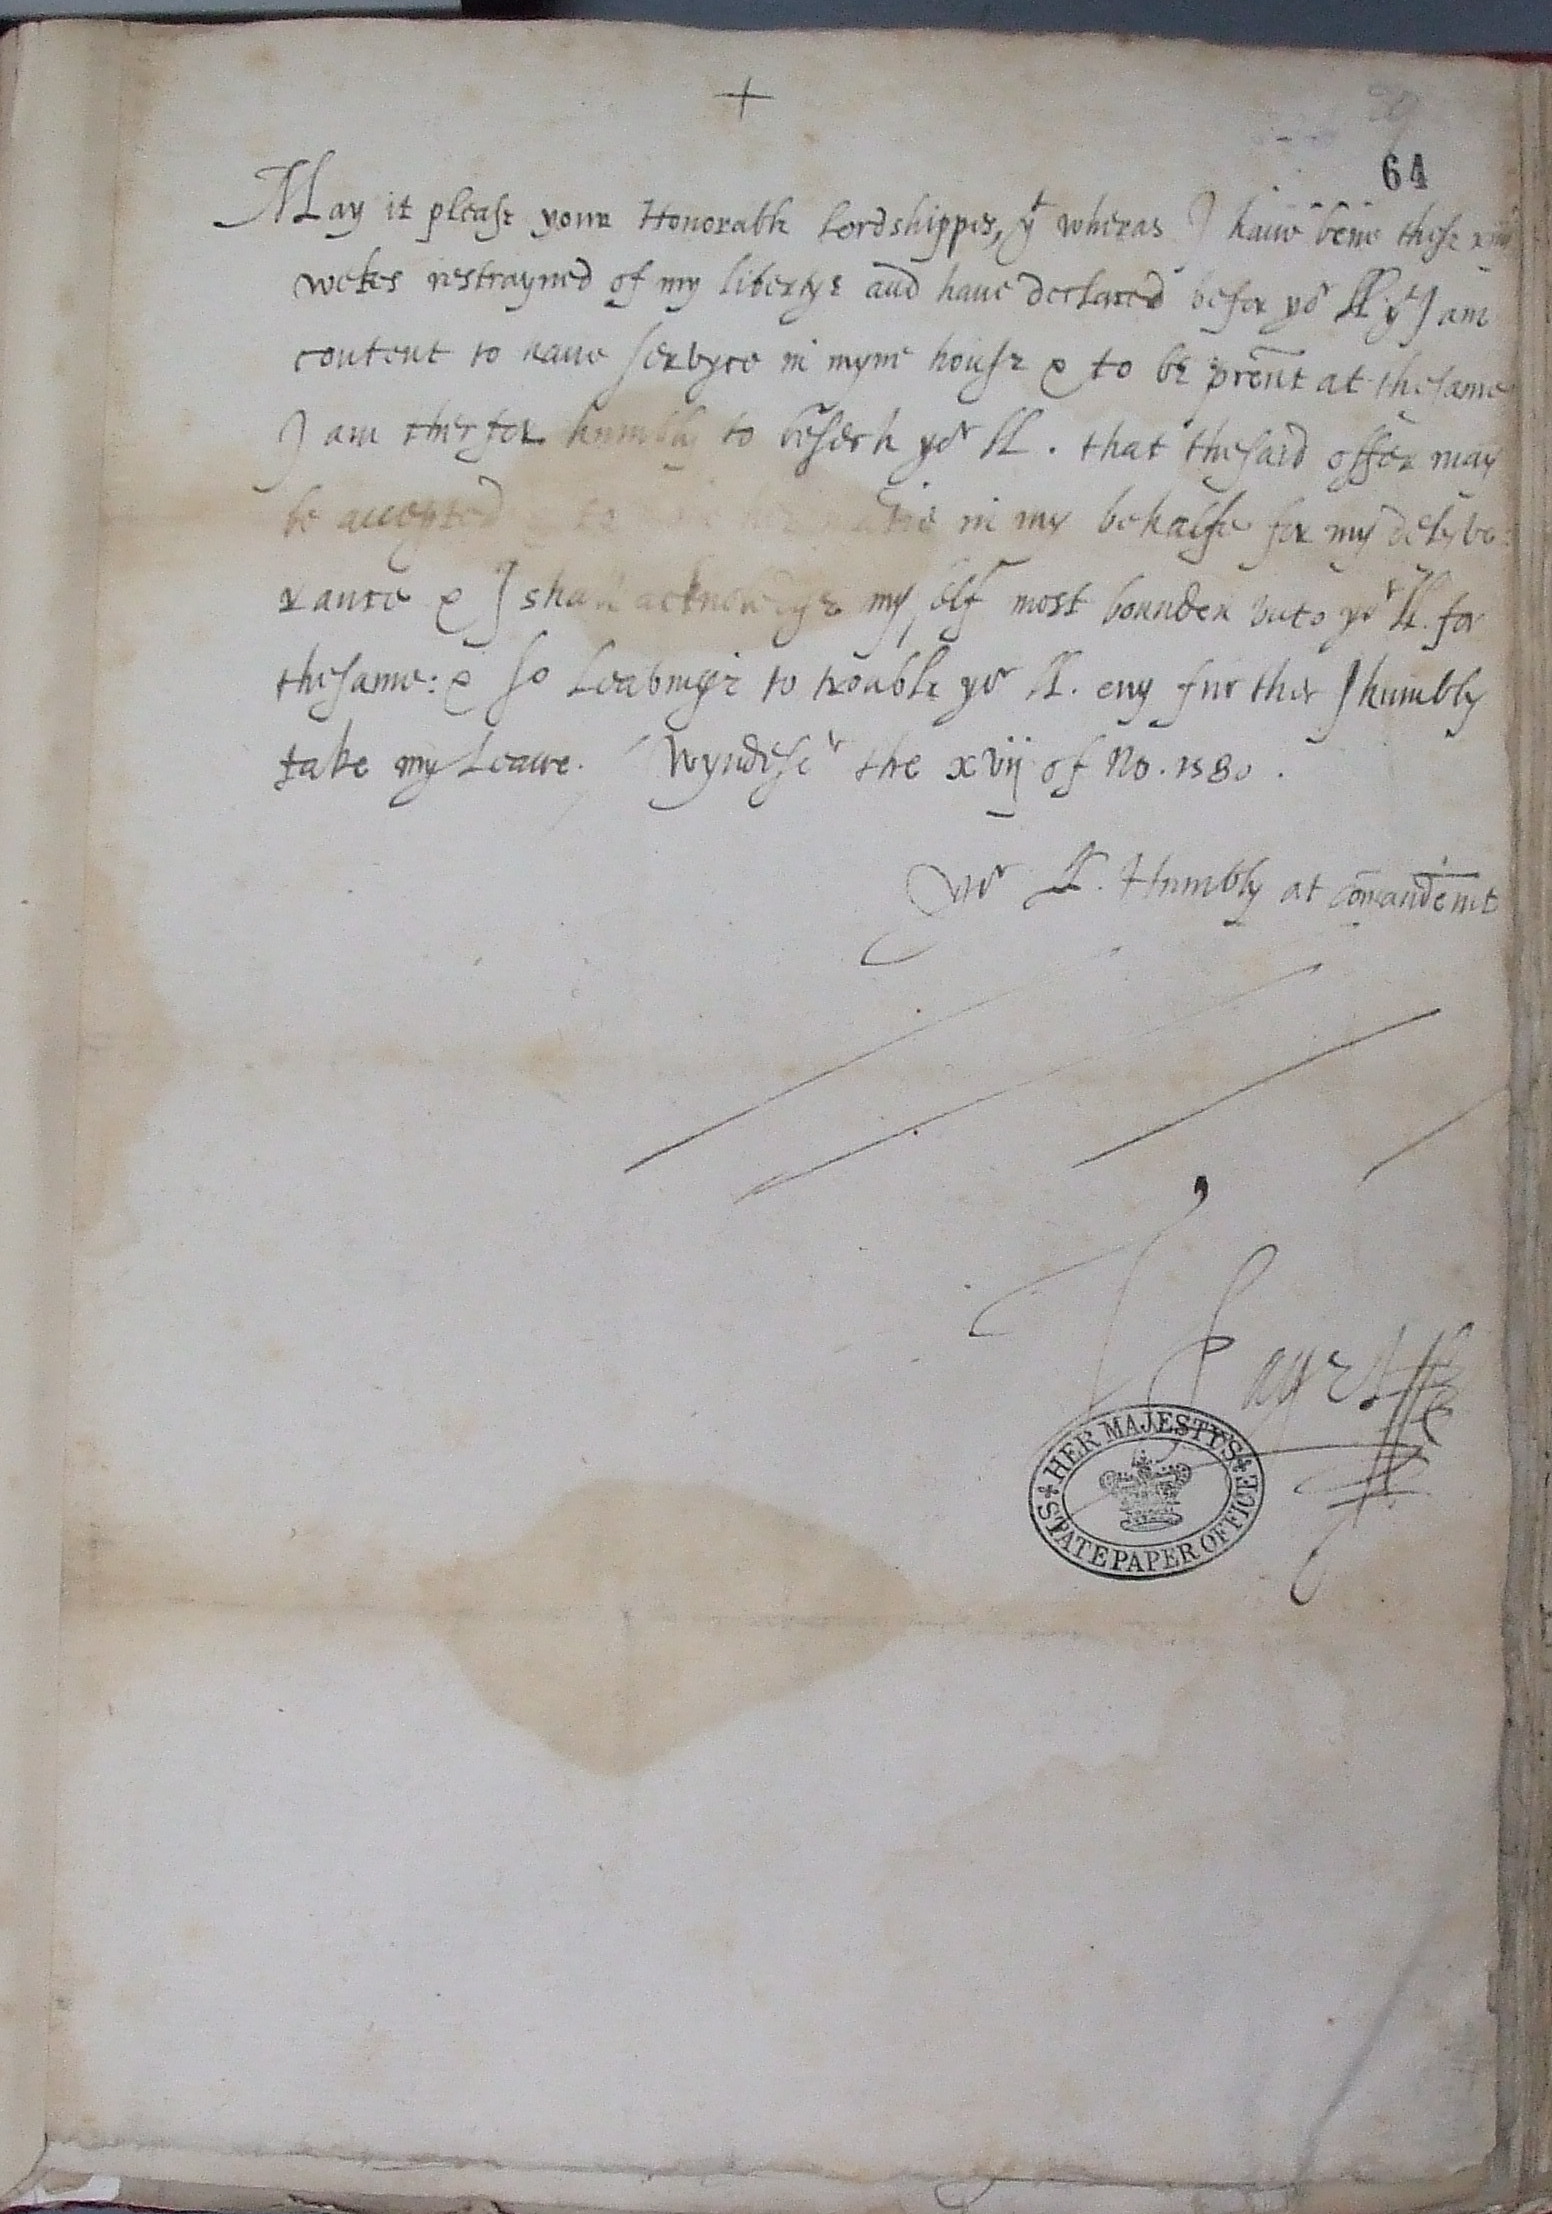 +
29
64
May it please your Honorable Lordshippes, yt wheras I haue bene these xiiij
wekes restrayned of my libertye and haue declared befor yor ll. yt I am
content to haue servyce in myne house & to be prent at thesame
I am therfor humbly to besech yor ll. that thesaid offer may
be accepted to her matie in my behalfe for my delyve:
rance & I shall acknoledge my self most bounden vnto yor ll. for
thesame: & so Leavinge to trouble yor ll. eny further I humbly
take my Leave. Wyndesr the xvij of No. 1580.
Yor ll. Humbly at comandemt
T Paget
HER MAJESTYS STATE PAPER OFFICE